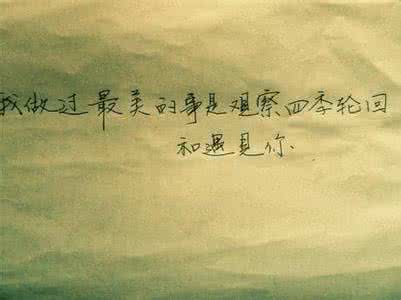 我做过最美的事是观察四季轮回
和遇見你.